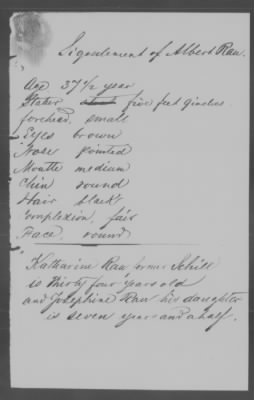 Signalement of Albert Rau.
Age 37 1/2 year
Stater five feet 9 inches.
forehead, small
Eyes brown
Nose pointed
Mouthe medium
Chin round
Hair black
Complexion, fair
Face, round
Katharine Rau former Schill
is thirty four years old
and Josephine Rau his daughter
is seven years and a half.